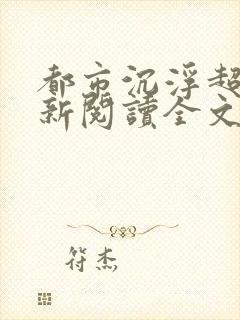 都市沉浮超
新閱讀全文
符杰